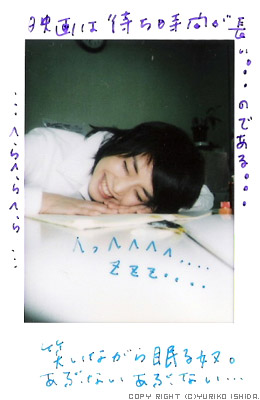 映画は待ち時間が長い。。。のである。。。。
…へらへらへら…
へっへへへへ.....
zzz....
笑いながら眠る奴。
あぶないあぶない…
COPY RIGHT (C)YURIKO ISHIDA.